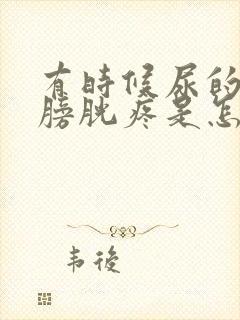 有時候尿的
膀胱疼是怎
韦後